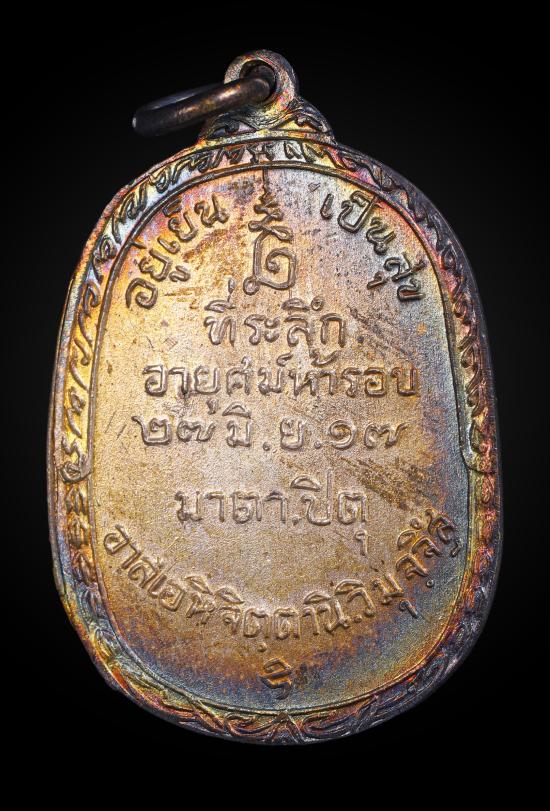 อยู่เย็น เป็นสุข
ที่ระลึก
อายุศม์ห้ารอบ
๒๗ มิ.ย.๑๗
มาตา.ปิตุ
อาสเวหิจิตฺตานิ.วิมุจฺจึสุ